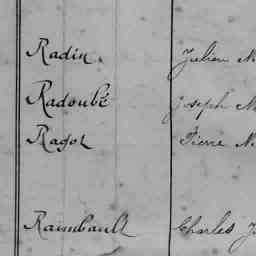 Radin Julien M
Radoubé Joseph M
Ragot Pierre M
Raimbault Charles J